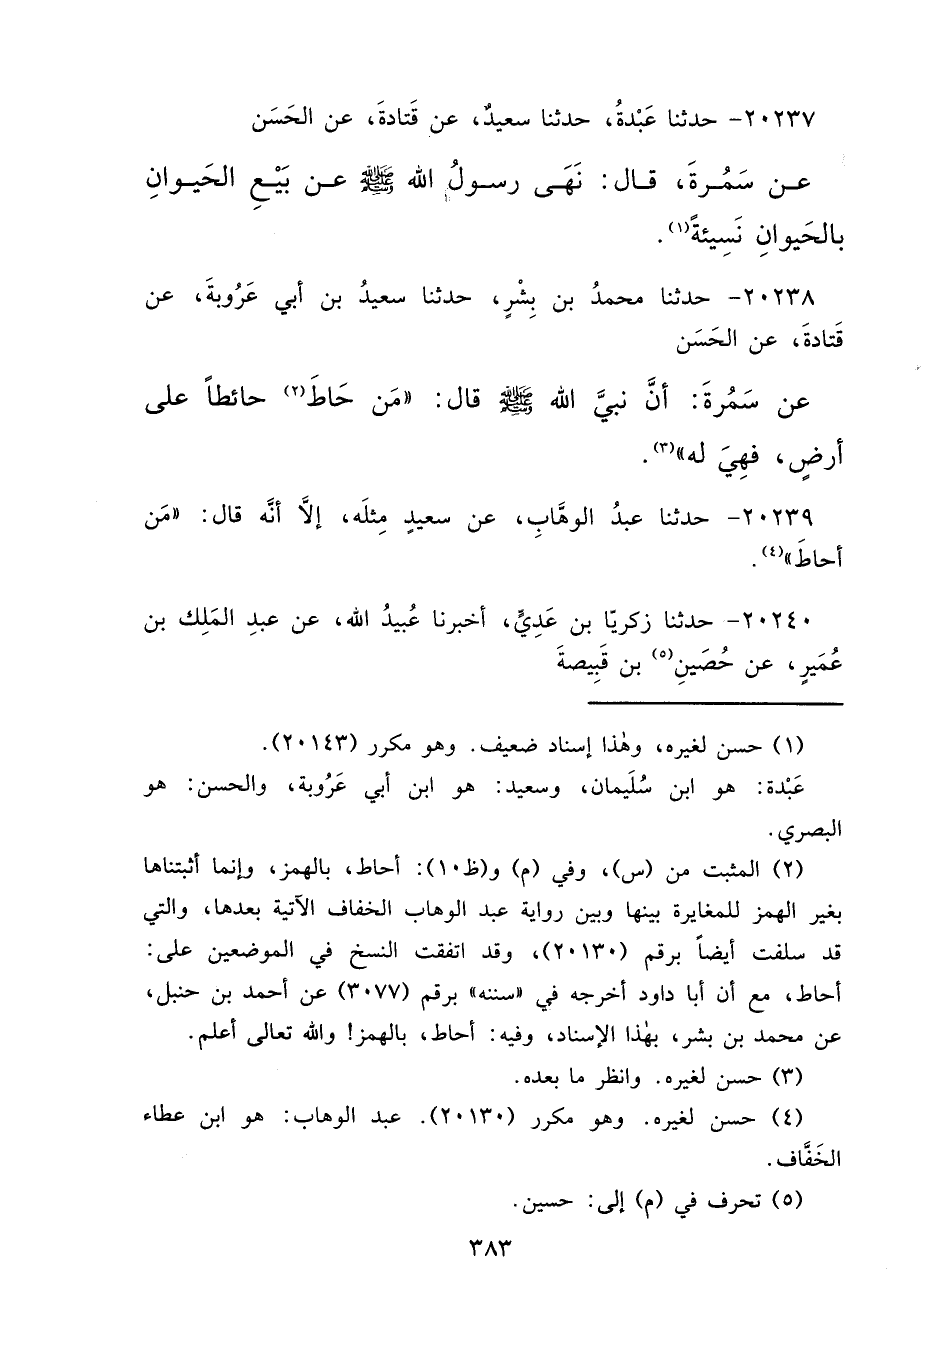 ٢٠٢٣٧- حدثنا عَبْدةُ، حدثنا سعيدٌ، عن قَتادةَ، عن الحَسَن
عـن سَمُـرةَ، قـال: نَهَـى رسـولُ الله ﷺ عـن بَيْـعِ الحَيـوانِ
بالحَيوانِ نَسِيئةً(١).
٢٠٢٣٨- حدثنا محمدُ بن بِشْرٍ، حدثنا سعيدُ بن أبي عَرُوبةَ، عن
قَتادةَ، عن الحَسَن
عن سَمُرةَ: أنَّ نبيَّ الله ﷺ قال: «مَن حَاطَ(٢) حائطاً على
أرضٍ، فهِيَ له»(٣).
٢٠٢٣٩- حدثنا عبدُ الوهَّابِ، عن سعيدٍ مِثلَه، إلاَّ أنَّه قال: «مَن
أحاطَ»(٤).
٢٠٢٤٠- حدثنا زكريّا بن عَدِيٍّ، أخبرنا عُبيدُ الله، عن عبدِ المَلِك بن
عُمَيرٍ، عن حُصَينِ(٥) بن قَبِيصةَ
(١) حسن لغيره، وهٰذا إسناد ضعيف. وهو مكرر (٢٠١٤٣).
عَبْدة: هو ابن سُلَيمان، وسعيد: هو ابن أبي عَرُوبة، والحسن: هو
البصري.
(٢) المثبت من (س)، وفي (م) و(ظ١٠): أحاط، بالهمز، وإنما أثبتناها
بغير الهمز للمغايرة بينها وبين رواية عبد الوهاب الخفاف الآتية بعدها، والتي
قد سلفت أيضاً برقم (٢٠١٣٠)، وقد اتفقت النسخ في الموضعين على:
أحاط، مع أن أبا داود أخرجه في «سننه» برقم (٣٠٧٧) عن أحمد بن حنبل،
عن محمد بن بشر، بهٰذا الإسناد، وفيه: أحاط، بالهمز! والله تعالى أعلم.
(٣) حسن لغيره. وانظر ما بعده.
(٤) حسن لغيره. وهو مكرر (٢٠١٣٠). عبد الوهاب: هو ابن عطاء
الخَفَّاف.
(٥) تحرف في (م) إلى: حسين.
٣٨٣